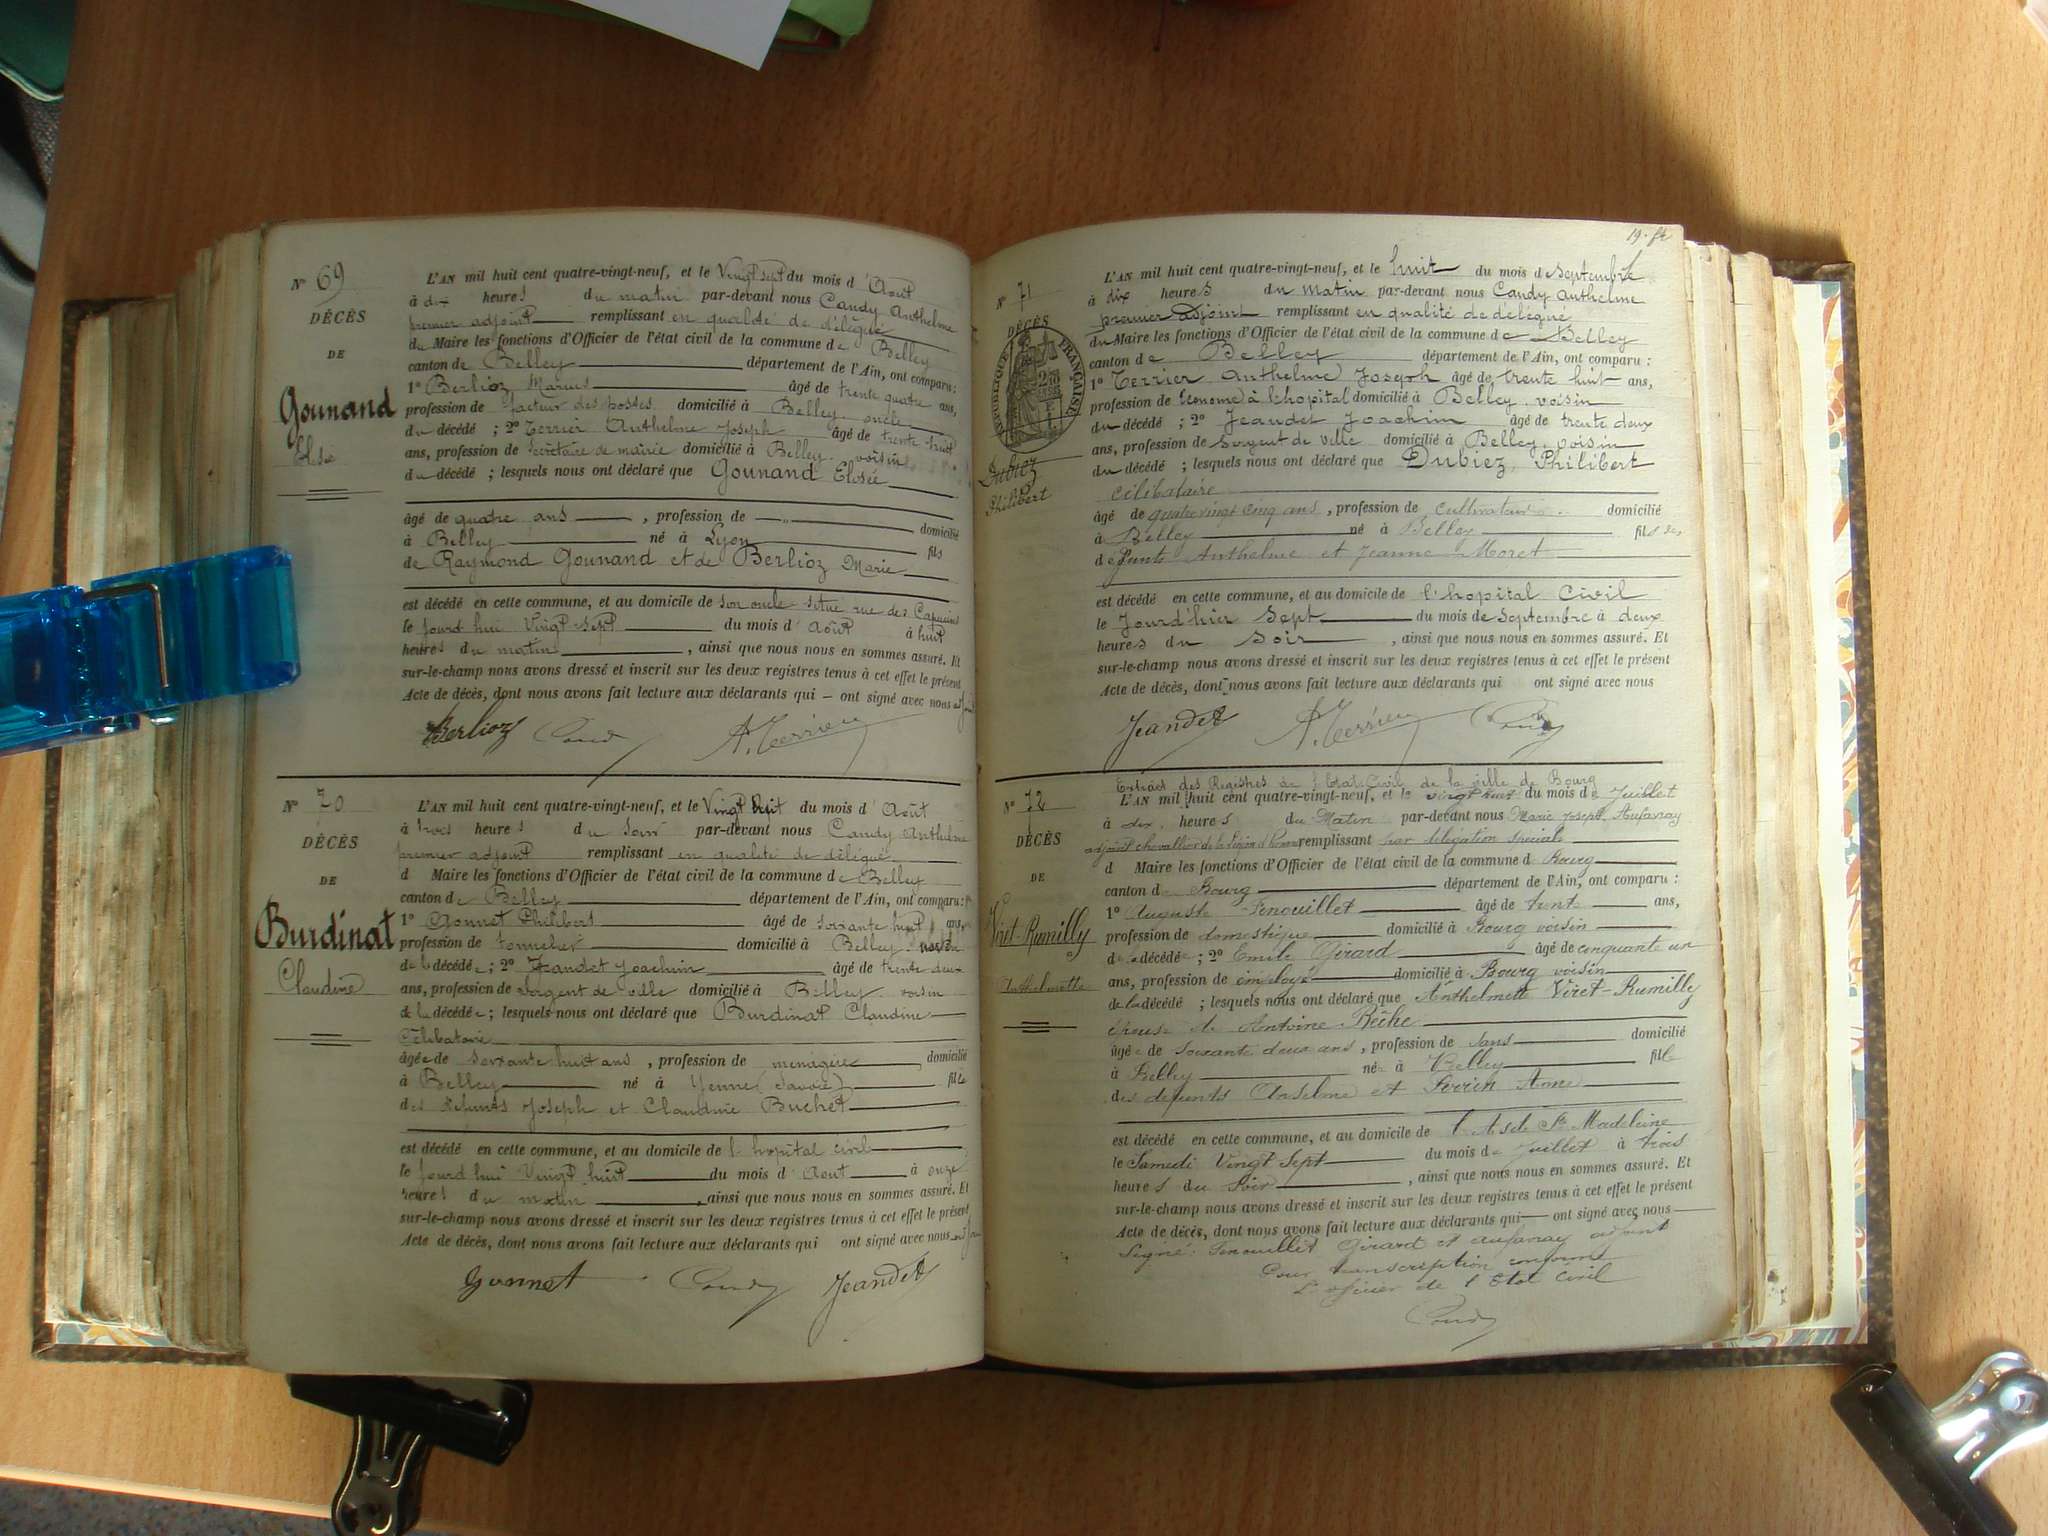 N° 69
DÉCÈS
DE
Gounand
Elosée
L'AN mil huit cent quatre-vingt-neuf, et le Vingt sept du mois d'Août
à dix heures du matin par-devant nous Candy Anthelme
premier adjoint remplissant en qualité de délégué
du Maire les fonctions d'Officier de l'état civil de la commune de Belley
canton de Belley département de l'Ain, ont comparu :
1° Berlioz Marius âgé de trente quatre ans,
profession de facteur des postes domicilié à Belley. oncle
du décédé ; 2° Terrier Anthelme Joseph âgé de trente huit
ans, profession de secrétaire de mairie domicilié à Belley. voisin
du décédé ; lesquels nous ont déclaré que Gounand Elosée
âgé de quatre ans, profession de domicilié
à Belley né à Lyon fils
de Raymond Gounand et de Berlioz Marie
est décédé en cette commune, et au domicile de son oncle situé rue des Capucins
le jourd'hui Vingt-sept du mois d'Août à huit
heures du matin, ainsi que nous nous en sommes assuré. Et
sur-le-champ nous avons dressé et inscrit sur les deux registres tenus à cet effet le présent
Acte de décès, dont nous avons fait lecture aux déclarants qui ont signé avec nous
Berlioz Candy A. Terrier
N° 70
DÉCÈS
DE
Burdinat
Claudine
L'AN mil huit cent quatre-vingt-neuf, et le Vingt huit du mois d'Août
à trois heures du soir par-devant nous Candy Anthelme
premier adjoint remplissant en qualité de délégué
d Maire les fonctions d'Officier de l'état civil de la commune de Belley
canton de Belley département de l'Ain, ont comparu :
1° Gonnet Philibert âgé de soixante huit ans,
profession de tonnelier domicilié à Belley. voisin
de la décédée ; 2° Jeandet Joachim âgé de trente deux
ans, profession de Sergent de ville domicilié à Belley. voisin
de la décédée ; lesquels nous ont déclaré que Burdinat Claudine
Célibataire
âgée de soixante huit ans, profession de ménagère domicilié
à Belley né à Yenne (Savoie) fille
des défunts Joseph et Claudine Buchet
est décédé en cette commune, et au domicile de l'hopital civil
le jourd'hui Vingt huit du mois d'Aout à onze
heures du matin, ainsi que nous nous en sommes assuré. Et
sur-le-champ nous avons dressé et inscrit sur les deux registres tenus à cet effet le présent
Acte de décès, dont nous avons fait lecture aux déclarants qui ont signé avec nous
Gonnet Candy Jeandet
N° 71
DÉCÈS
RÉPUBLIQUE FRANÇAISE
Dubiez
Philibert
L'AN mil huit cent quatre-vingt-neuf, et le huit du mois d septembre
à dix heures du matin par-devant nous Candy Anthelme
premier adjoint remplissant en qualité de délégué
du Maire les fonctions d'Officier de l'état civil de la commune de Belley
canton de Belley département de l'Ain, ont comparu :
1° Terrier Anthelme Joseph âgé de trente huit ans,
profession de économe à l'hopital domicilié à Belley. voisin
du décédé ; 2° Jeandet Joachim âgé de trente deux
ans, profession de Sergent de ville domicilié à Belley. voisin
du décédé ; lesquels nous ont déclaré que Dubiez, Philibert
célibataire
âgé de quatre vingt cinq ans, profession de cultivateur domicilié
à Belley né à Belley fils des
défunts Anthelme et Jeanne Moret
est décédé en cette commune, et au domicile de l'hopital Civil
le Jourd'hier Sept du mois de Septembre à deux
heures du Soir, ainsi que nous nous en sommes assuré. Et
sur-le-champ nous avons dressé et inscrit sur les deux registres tenus à cet effet le présent
Acte de décès, dont nous avons fait lecture aux déclarants qui ont signé avec nous
Jeandet A. Terrier Candy
N° 72
DÉCÈS
DE
Viret-Rumilly
Anthelmette
Extrait des Registres de l'Etat Civil de la ville de Bourg
L'AN mil huit cent quatre-vingt-neuf, et le vingt huit du mois de Juillet
à dix heures du Matin par-devant nous Marie Joseph Aufavray
adjoint chevallier de la Légion d'honneur remplissant par délégation spéciale
d Maire les fonctions d'Officier de l'état civil de la commune d Bourg
canton de Bourg département de l'Ain, ont comparu :
1° Auguste Fenouillet âgé de trente ans,
profession de domestique domicilié à Bourg voisin
de la décédée ; 2° Emile Girard âgé de cinquante un
ans, profession de employé domicilié à Bourg voisin
de la décédé ; lesquels nous ont déclaré que Anthelmette Viret-Rumilly
épouse de Antoine Bêche
âgée de soixante deux ans, profession de sans domicilié
à Belley née à Belley fille
des défunts Anselme et Anne
est décédé en cette commune, et au domicile de l'Asile Ste Madeleine
le Samedi Vingt Sept du mois de Juillet à trois
heures du Soir, ainsi que nous nous en sommes assuré. Et
sur-le-champ nous avons dressé et inscrit sur les deux registres tenus à cet effet le présent
Acte de décès, dont nous avons fait lecture aux déclarants qui ont signé avec nous
Signé : Fenouillet Girard et Aufavray adjoint
Pour transcription conforme
L'officier de l'Etat Civil
Candy